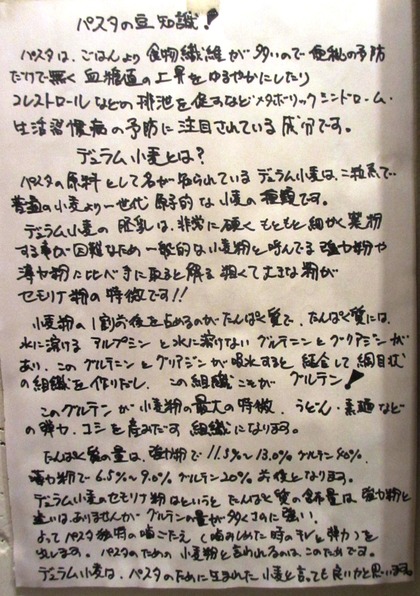 パスタの豆知識!
パスタは、ごはんより食物繊維が多いので便秘の予防
だけで無く血糖値の上昇をゆるやかにしたり
コレストロールなどの排泄を促すなどメタボリックシンドローム・
生活習慣病の予防に注目されている成分です。
デュラム小麦とは?
パスタの原料として名が知られているデュラム小麦は、二粒系で
普通の小麦より一世代原子的な小麦の種類です。
デュラム小麦の胚乳は、非常に硬くもともと細かく製粉
する事が困難なため一般的な小麦粉と呼んでる強力粉や
薄力粉に比べ手に取ると解る粗くて大きな粉が
セモリナ粉の特徴です!!
小麦粉の1割前後を占めるのがたんぱく質で、たんぱく質には、
水に溶けるアルブミンと水に溶けないグルテニンとグリアジンが
あり、このグルテニンとグリアジンが吸水すると結合して網目状
の組織を作りだし、この組織こそがグルテン!
このグルテンが小麦粉の最大の特徴、うどん・素麺など
の弾力、コシを産みだす組織になります。
たんぱく質の量は、強力粉で11.5%~13.0%グルテン40%.
薄力粉で6.5%~9.0%グルテン20%前後となります。
デュラム小麦のセモリナ粉はというとたんぱく質の含有量は、強力粉と
違いはありませんがグルテンの量が多くさらに強い、
よってパスタ独特の歯ごたえ(噛みしめた時のキレと弾力)を
出します。パスタのための小麦粉と言われるのは、このためです。
デュラム小麦は、パスタのために生まれた小麦と言っても良いかと思います。